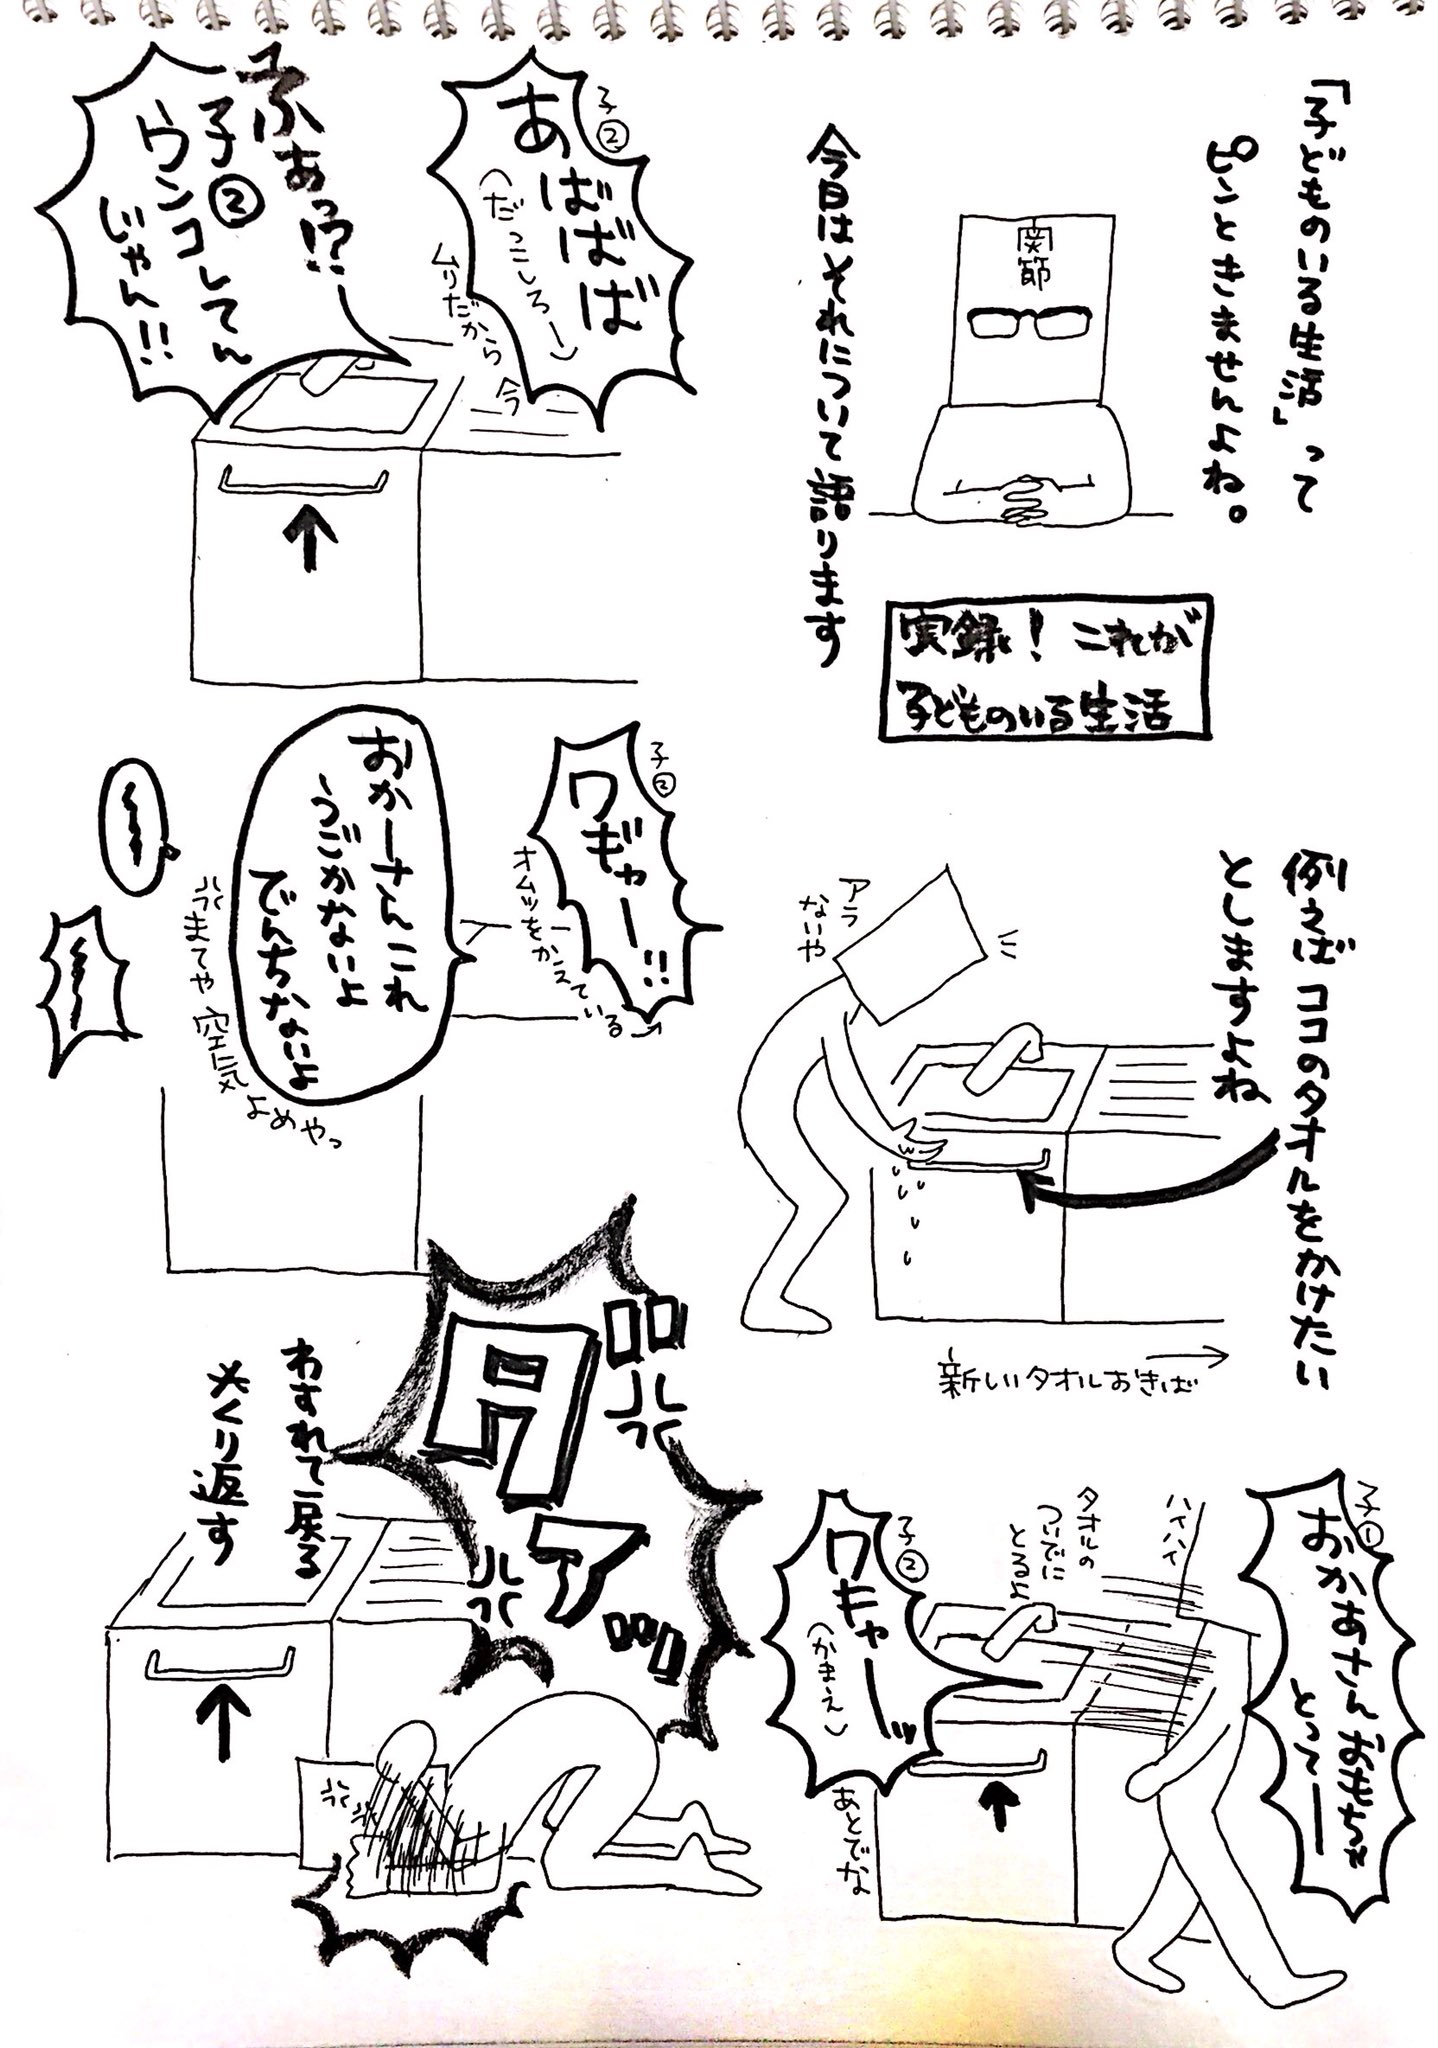 「子どものいる生活」って
ピンときませんよね。
関節
今日はそれについて語ります
実録！これが
子どものいる生活
例えばココのタオルをかけたい
としますよね
アラ
ないや
新しいタオルおきば
子①
おかあさんおもちゃ
とってー
ハイハイ
タオルの
ついでに
とるよ
子②
ワギャーッ
(かまえ)
あとでな
子②
あばばば
(だっこしろー)
今
ムリだから
ふぁっ!?
子②
ウンコしてん
じゃん!!
子②
ワギャー!!
オムツをかえている
おかーさんこれ
うごかないよ
でんちないよ
まてや 空気よめやっ
ダァ
わすれて戻る
×くり返す